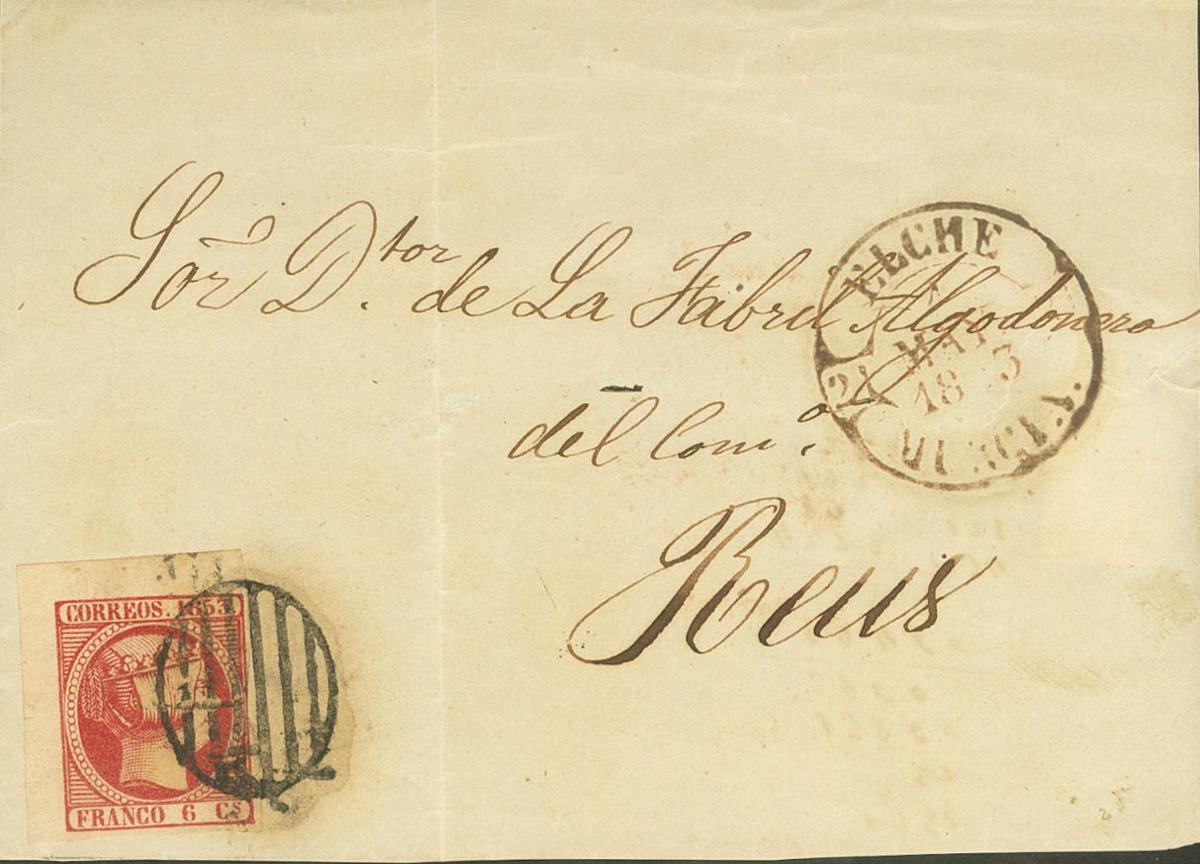 Sor̃ D.tor de La Fabril Algodonera
del Com.o
Reus
ELCHE
21
18 3
MURCIA.
CORREOS. 1853
FRANCO 6 Cs